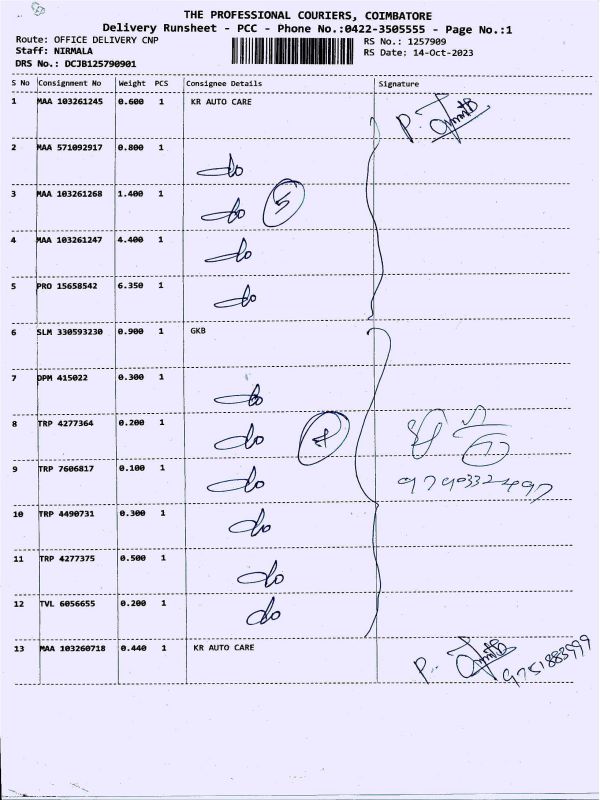 THE PROFESSIONAL COURIERS, COIMBATORE
Delivery Runsheet - PCC - Phone No.:0422-3505555 - Page No.:1
Route: OFFICE DELIVERY CNP
RS No.: 1257909
Staff: NIRMALA
RS Date: 14-Oct-2023
DRS No.: DCJB125790901
S No Consignment No Weight PCS Consignee Details Signature
1 MAA 103261245 0.600 1 KR AUTO CARE
P.
2 MAA 571092917 0.800 1 do
3 MAA 103261268 1.400 1 do 5
4 MAA 103261247 4.400 1 do
5 PRO 15658542 6.350 1 do
6 SLM 330593230 0.900 1 GKB
7 DPM 415022 0.300 1 do
8 TRP 4277364 0.200 1 do
9 TRP 7606817 0.100 1 do
10 TRP 4490731 0.300 1 do
11 TRP 4277375 0.500 1 do
12 TVL 6056655 0.200 1 do
13 MAA 103260718 0.440 1 KR AUTO CARE
P.
9751883999